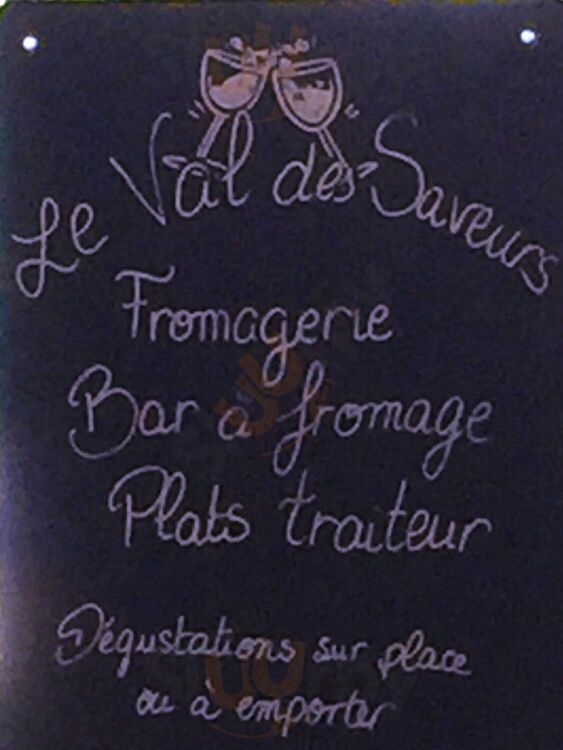 Le Val des Saveurs
Fromagerie
Bar à fromage
Plats traiteur
Dégustations sur place
ou à emporter